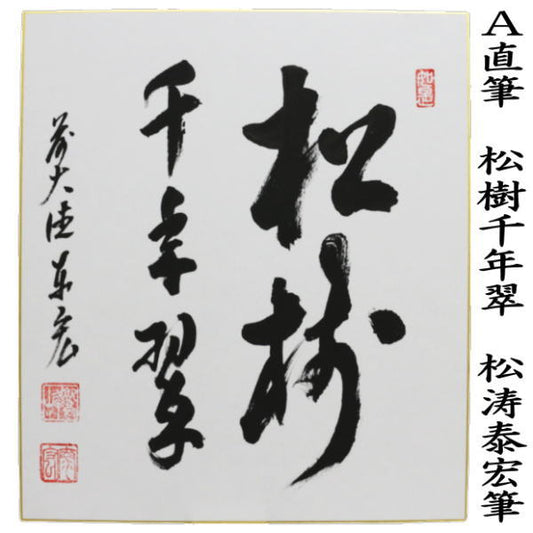 A直筆 松樹千年翠 松涛泰宏筆
松樹
千年翠
前大徳泰宏